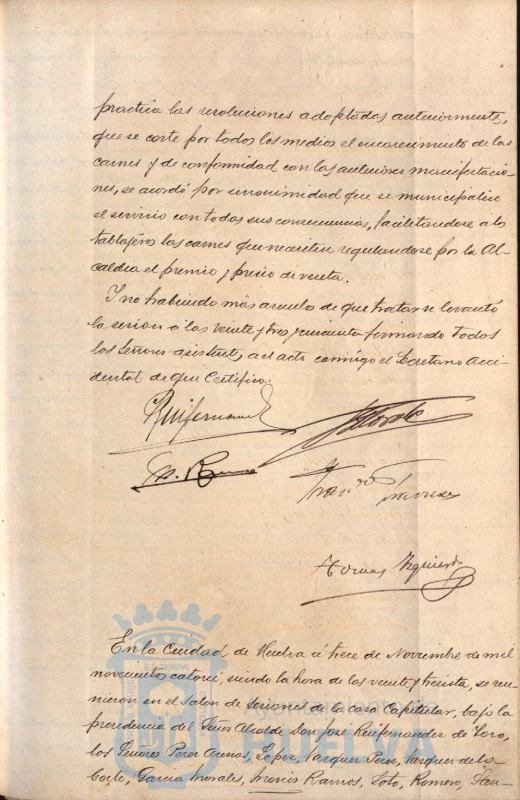 practica las resoluciones adoptadas anteriormente,
que se corte por todos los medios el encarecimiento de las
carnes y de conformidad con las anteriores manifestacio-
nes, se acordó por unanimidad que se municipalice
el servicio con todas sus consecuencias, facilitandose a los
tablajeros las carnes que necesiten regulandose por la Al-
caldia el premio y precio de venta.
Y no habiendo más asuntos de que tratar se levantó
la sesion a las veinte y tres y cincuenta firmando todos
los Señores asistentes, al acto conmigo el Secretario Acci-
dental de que Certifico.
Ruifernandez
M. Ramos
Franco
Tomas Izquierdo
En la Ciudad de Huelva á trece de Noviembre de mil
novecientos catorce, siendo la hora de las veinte y treinta, se reu-
nieron en el Salon de Sesiones de la casa Capitular, bajo la
presidencia del Señor Alcalde Don José Ruifernandez de Toro,
los Señores Perez Arenas, Lopez, Vazquez Perez, Vazquez de la
Corte, Garcia Morales, Ramos, Soto, Romero,
HUELVA